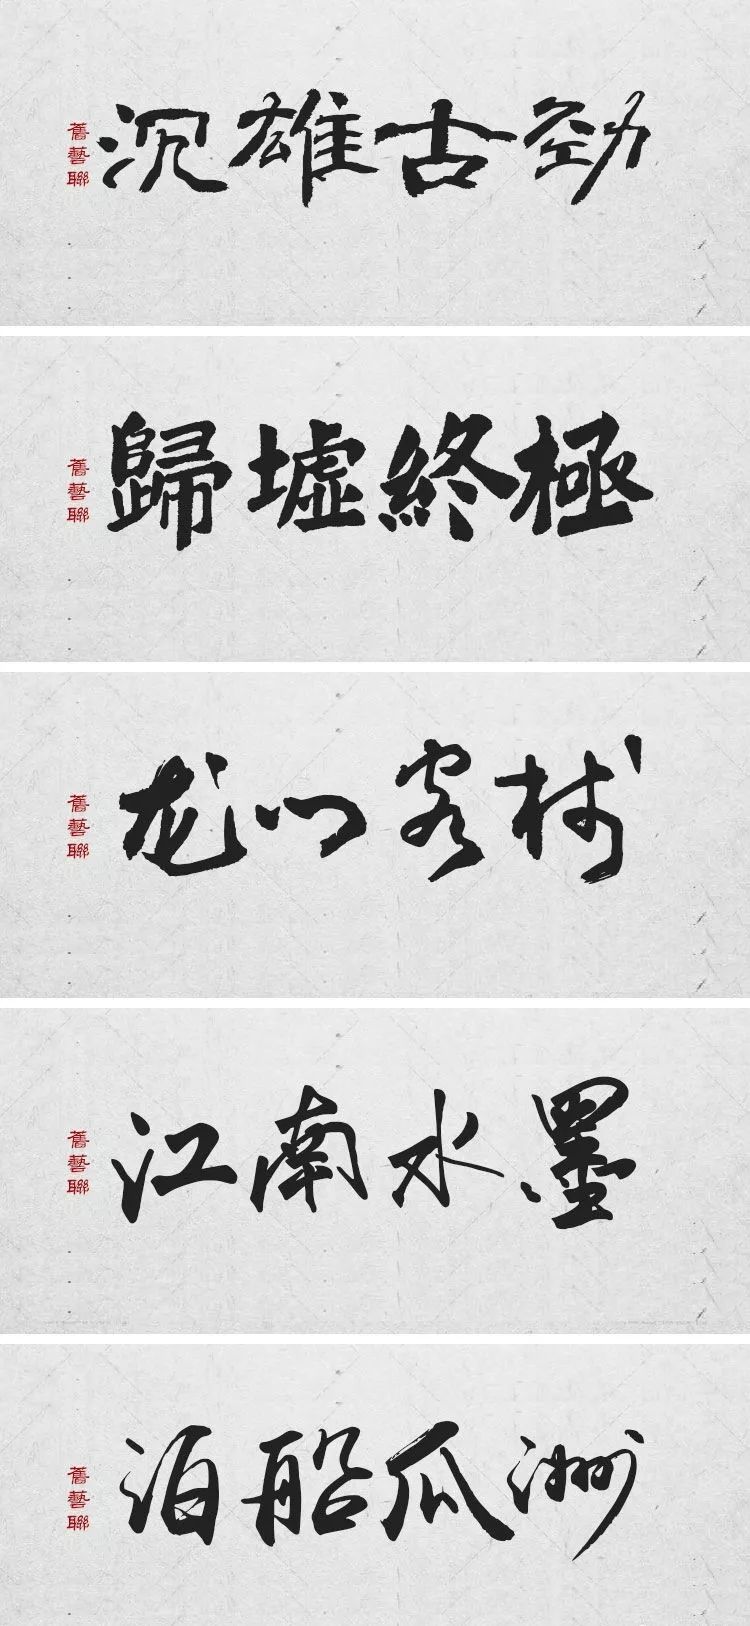 沉雄古劲
舊藝聯
歸墟終極
舊藝聯
龙门客栈
舊藝聯
江南水墨
舊藝聯
泊船瓜洲
舊藝聯